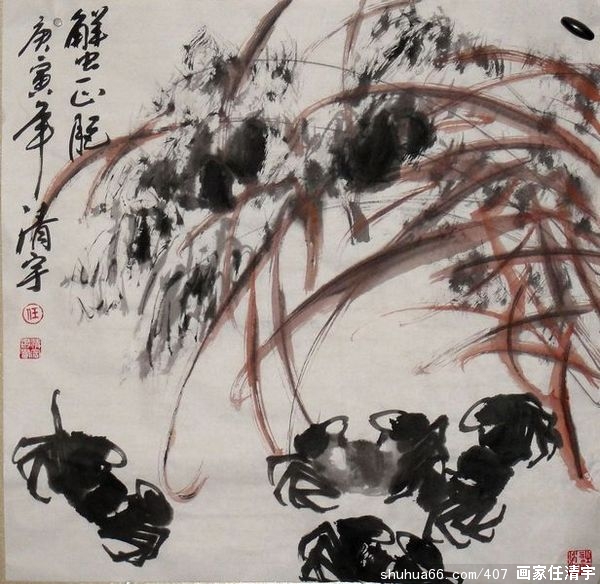 蟹正肥
庚寅年 清宇
任
shuhua66.com/407 画家任清宇